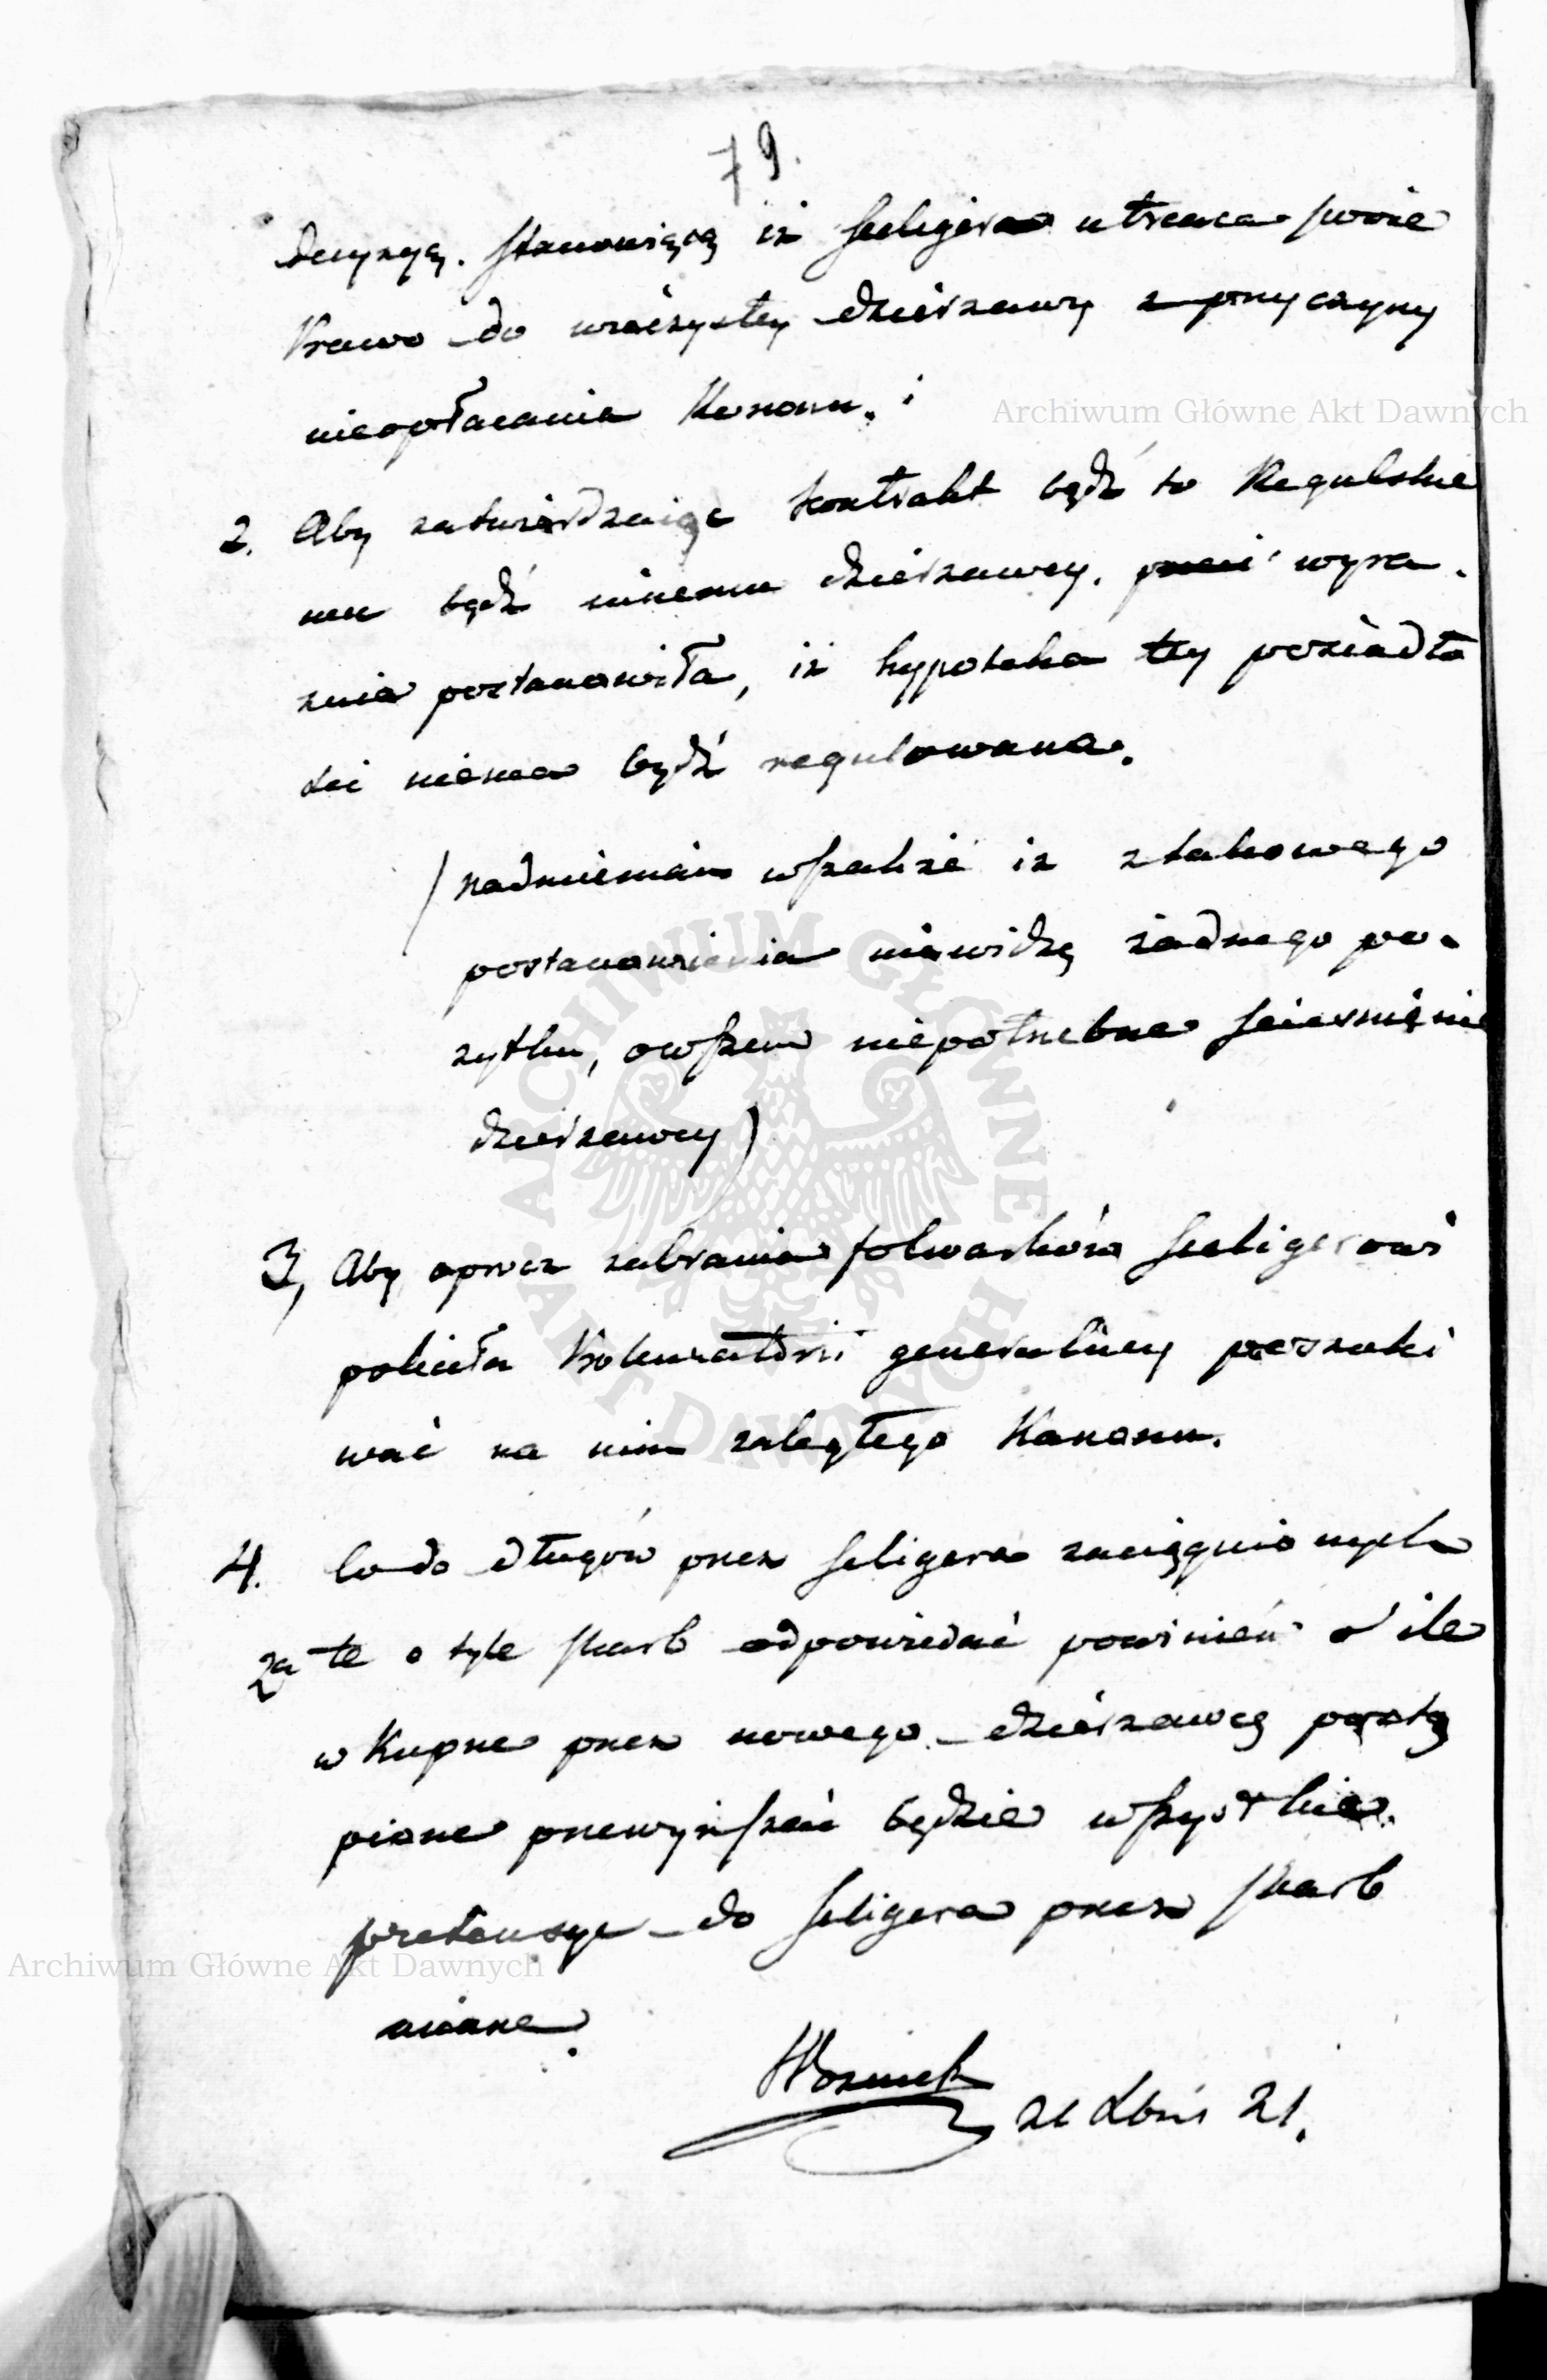 79.
decyzyę. stanowiącą iż Seeligera utraca swoie
Prawo do wieczystey dzierzawy z przyczyny
nieopłacania Kanonu. i
2. Aby zatwierdzaiąc kontrakt bądź to Regulskie
mu bądź innemu dzierzawcy. wyra.
znie postanowiła, iż hypoteka tey posiadło
sci niema bydź regulowana.
(nadmieniam wszakże iż z takowego
postanowienia niewidzę żadnego po.
zytku, owszem niepotrzebne scieśnienie
dzierzawcy)
3, Aby oprócz zabrania folwarków Seeligerowi
poleciła Prokuratorii generalney poszuki
wać na nim zaległego Kanonu.
4. Co do długów przez Seligera zaciągnionych
za te o tyle skarb odpowiedać powinien o ile
wkupne przez nowego dzierzawcę postą
pione przewyższać będzie wszystkie
pretensye do Seligera przez skarb
miane.
Woznicki 21 Xbris 21.
Archiwum Główne Akt Dawnych
ARCHIWUM GŁÓWNE AKT DAWNYCH
Archiwum Główne Akt Dawnych